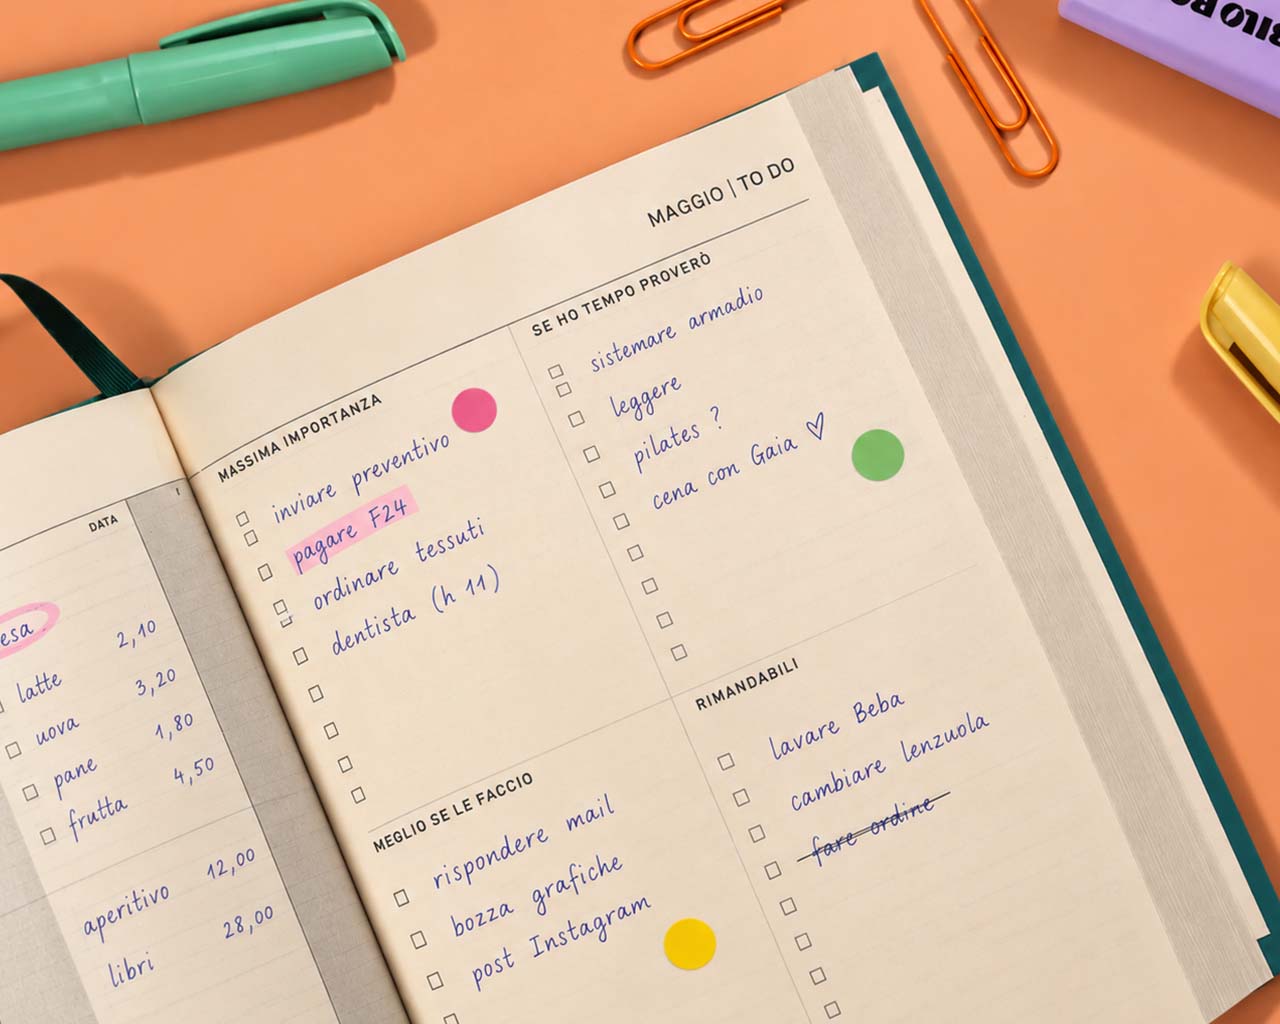 BILO BO
MAGGIO | TO DO
MASSIMA IMPORTANZA
inviare preventivo
pagare F24
ordinare tessuti
dentista (h 11)
SE HO TEMPO PROVERÒ
sistemare armadio
leggere
pilates ?
cena con Gaia ♡
MEGLIO SE LE FACCIO
rispondere mail
bozza grafiche
post Instagram
RIMANDABILI
lavare Beba
cambiare lenzuola
fare ordine
DATA
esa
latte 2,10
uova 3,20
pane 1,80
frutta 4,50
aperitivo 12,00
libri 28,00